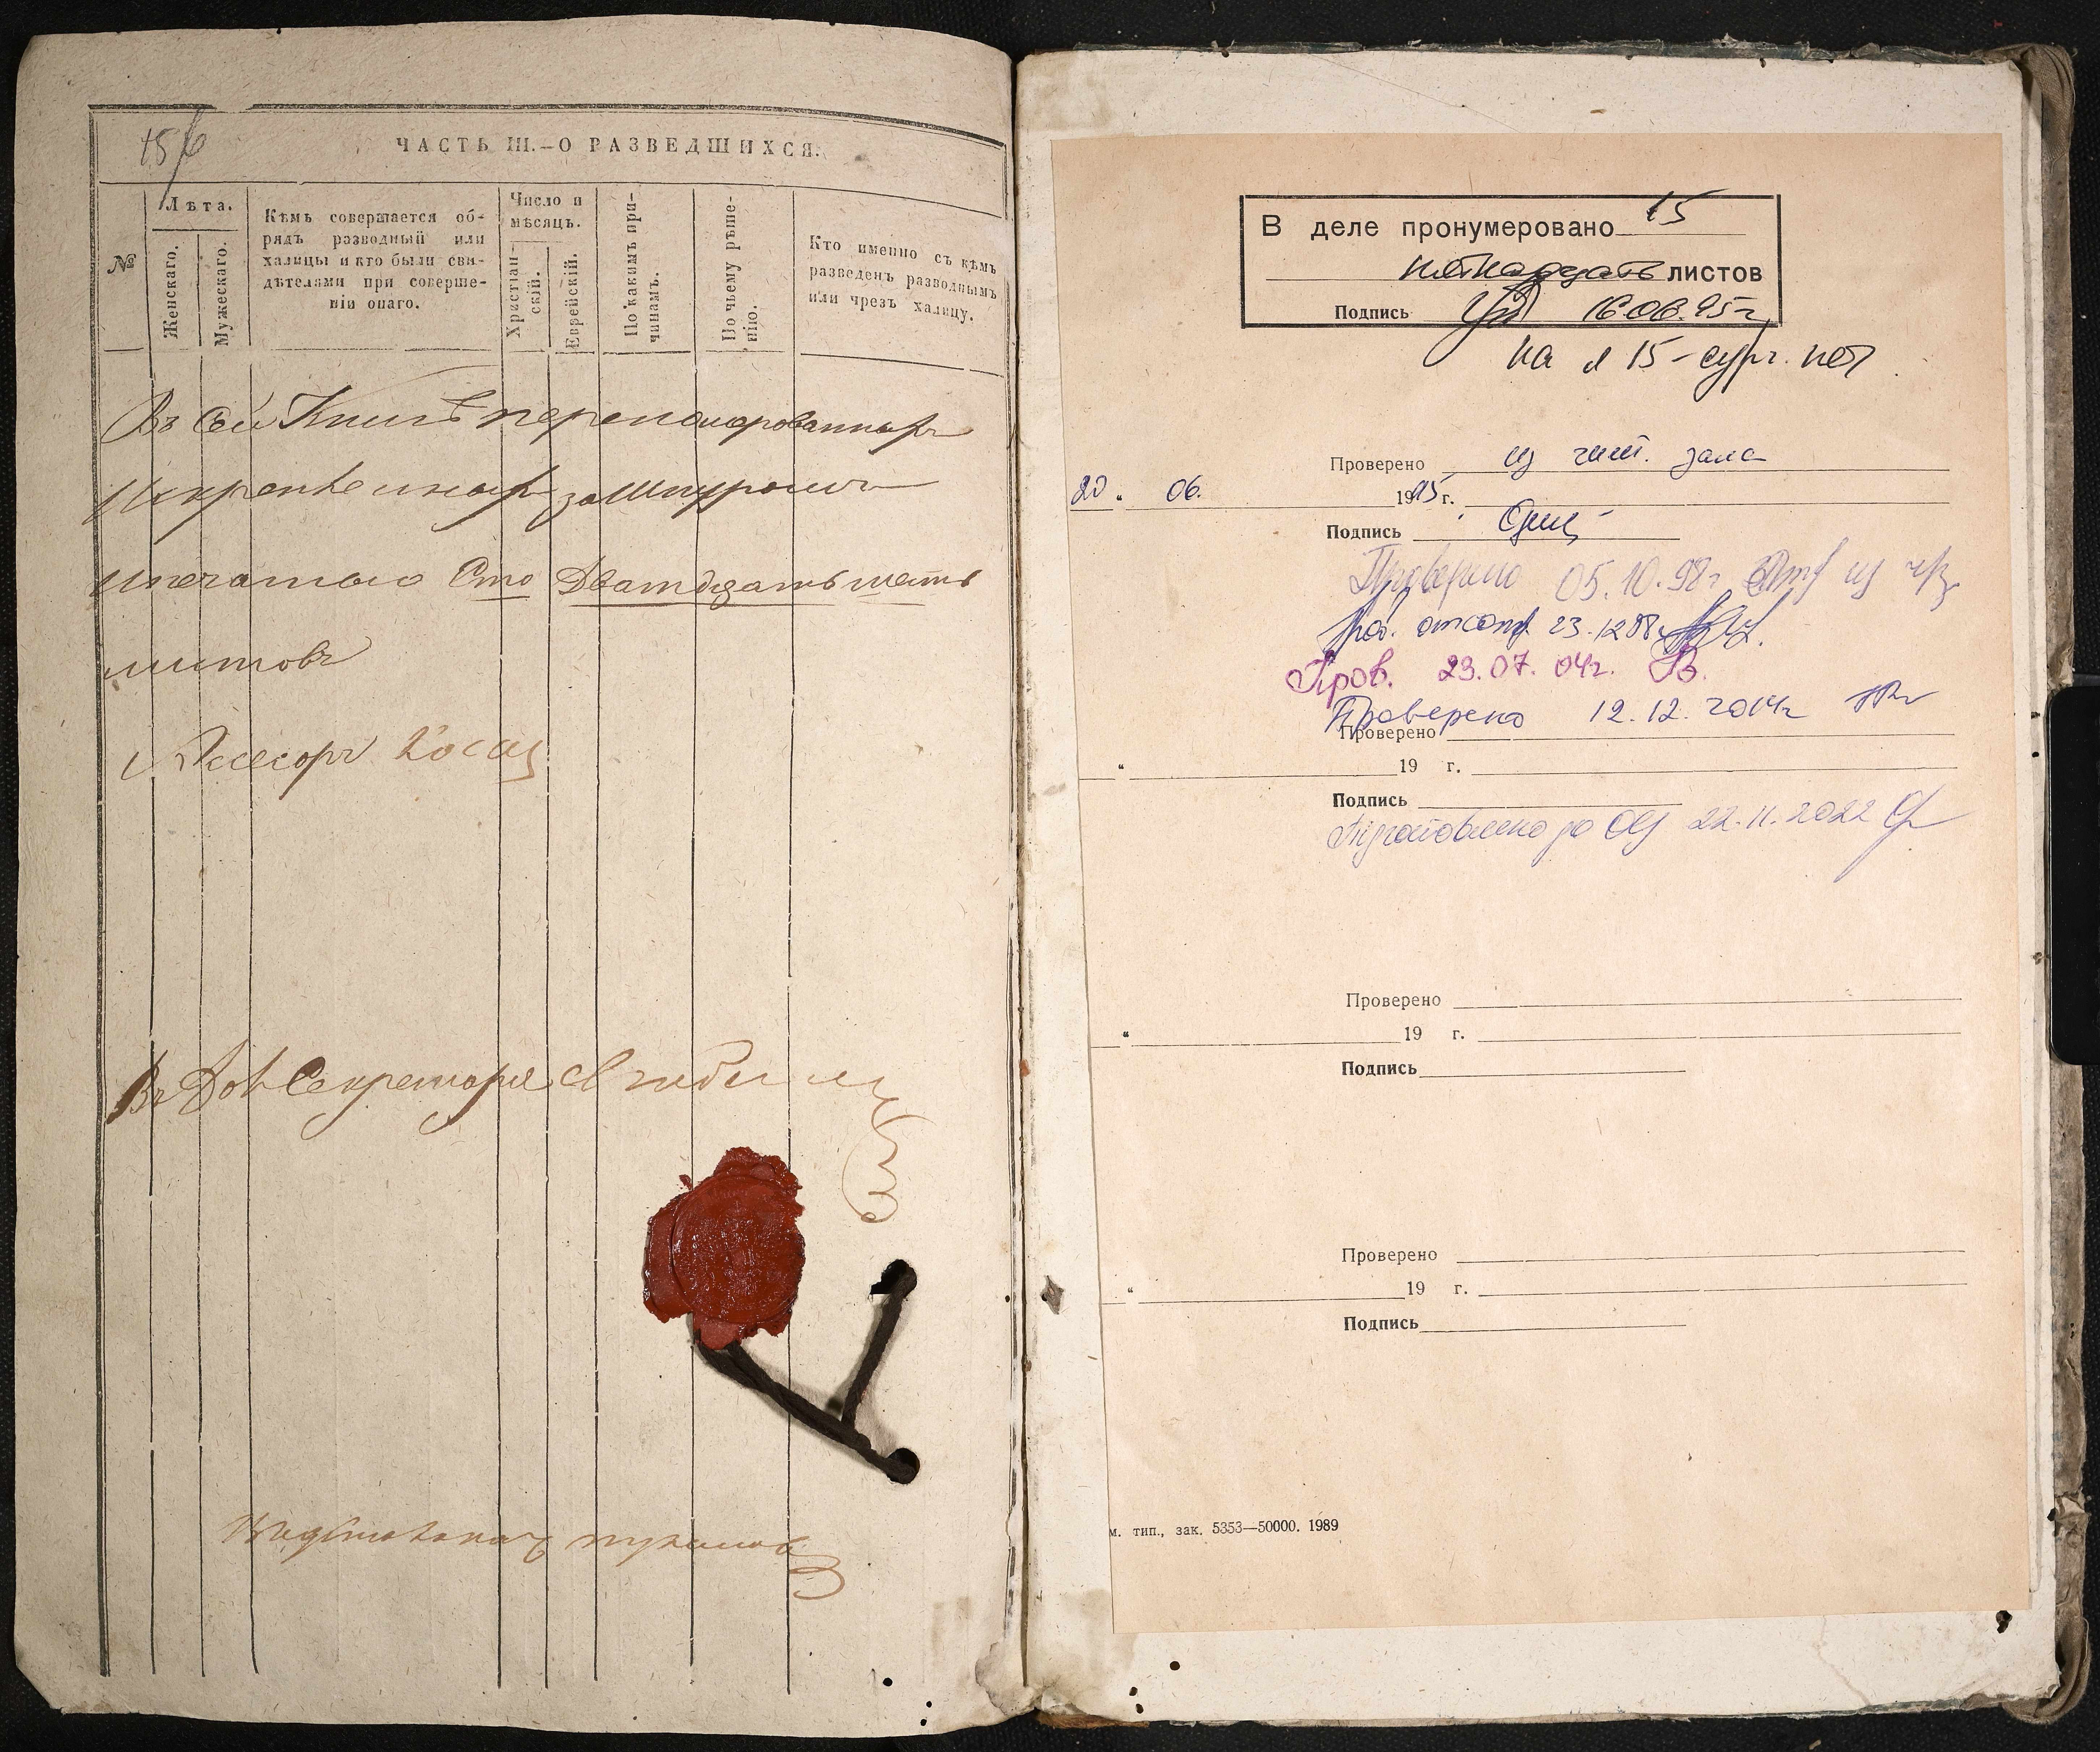 ЧАСТЬ III.—О РАЗВЕДШИХСЯ.
№
Лѣта.
Женскаго.
Мужескаго.
Кѣмъ совершается об-
рядъ разводный или
халицы и кто были сви-
дѣтелями при соверше-
ніи онаго.
Число и
мѣсяцъ.
Христіан-
скій.
Еврейскій.
По какимъ при-
чинамъ.
По чьему рѣше-
нію.
Кто именно съ кѣмъ
разведенъ разводнымъ
или чрезъ халицу.
Въ Сей Книгѣ перономерованныхъ
за Шнуромъ
и печатью Сто Дватдцать шесть
листовъ
Ассесоръ
Въ Дол Секретаря
В деле пронумеровано 15
пятнадцать листов
Подпись 16.06.95 г.
на л 15 - сург. печ
Проверено из чит. зала
20 " 06. 1995 г.
Подпись
Проверено 05.10.98г из ч/з
Проверено 12.12.2014г
Пров. 23.07.04г.
Проверено
" 19 г.
Подпись
Підготовлено до ОЦ 22.11.2022
Проверено
" 19 г.
Подпись
Проверено
" 19 г.
Подпись
м. тип., зак. 5353—50000. 1989